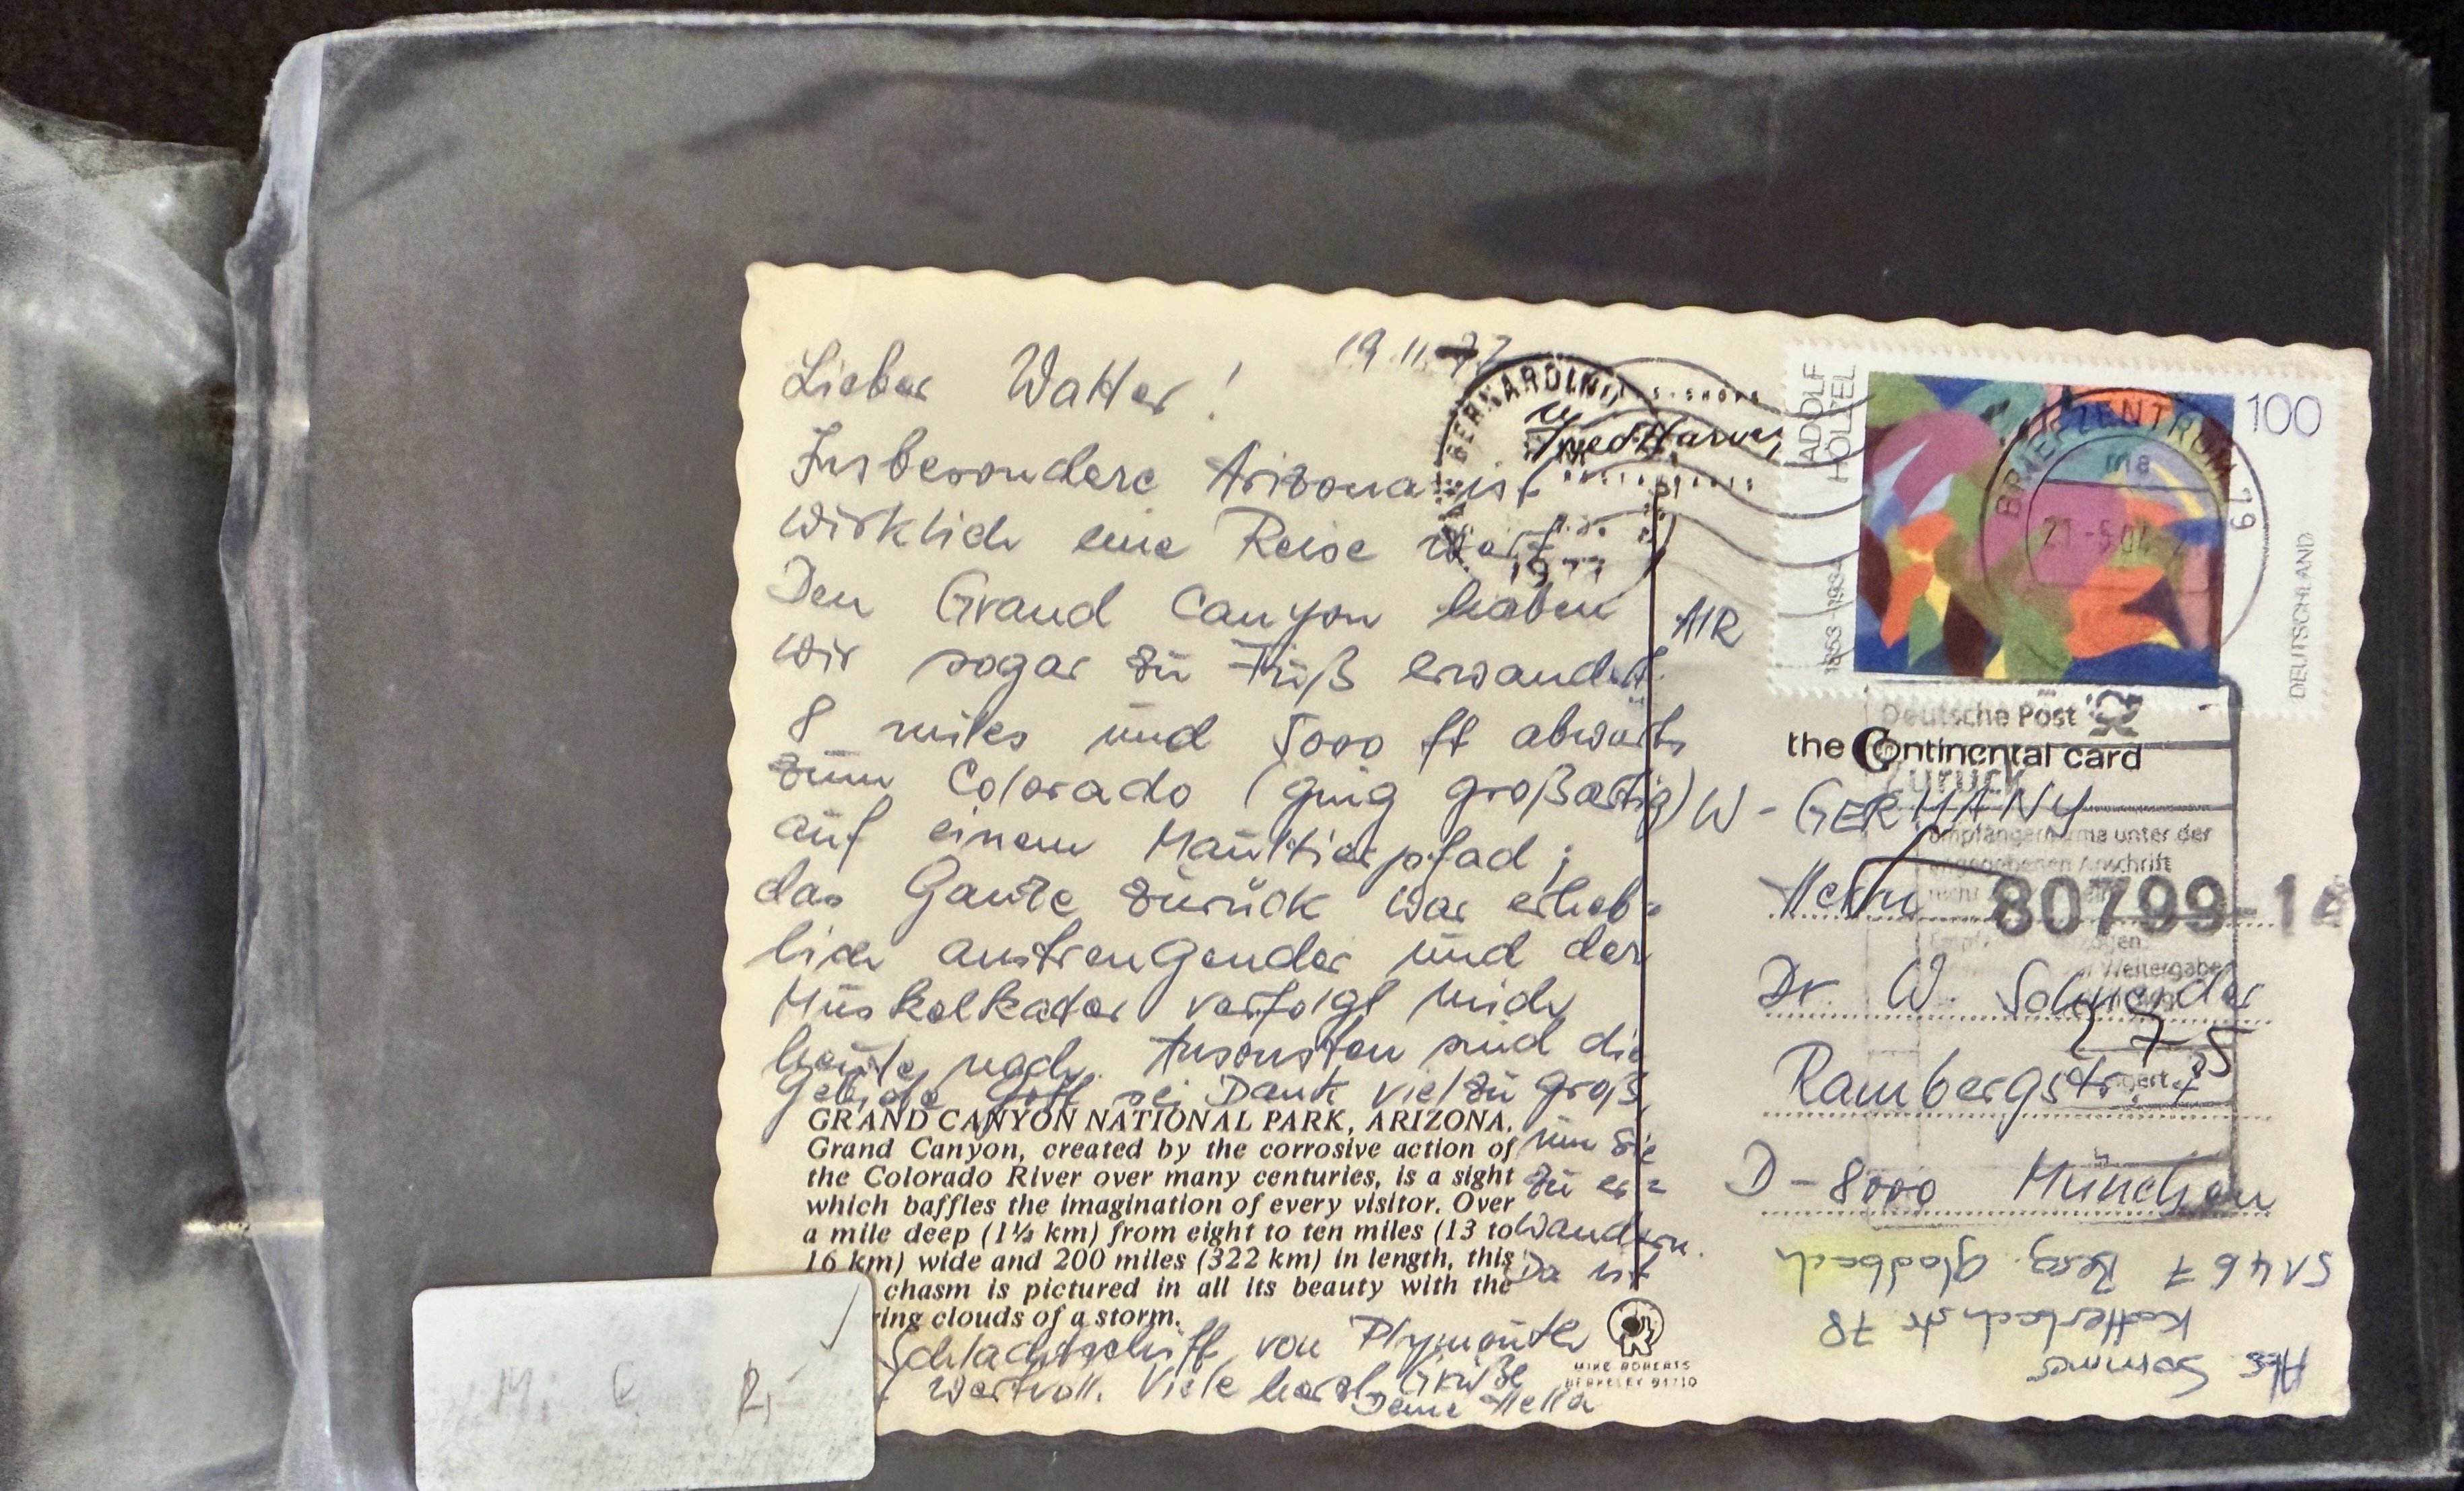 19.11.77
Lieber Walter!
Insbesondere Arizona ist
wirklich eine Reise wert.
Den Grand Canyon haben
wir sogar zu Fuß erwandert.
8 miles und 5000 ft abwärts
zum Colorado (ging großartig)
auf einem Maultierpfad;
das Ganze zurück war erheb-
lich anstrengender und der
Muskelkater verfolgt mich
heute noch. Ansonsten sind die
Gebiete Gott sei Dank viel zu groß,
um sie
zu er-
wandern.
Da ist
Schlachtschiff von Plymouth
wertvoll. Viele herzl. Grüße
Deine Hella
GRAND CANYON NATIONAL PARK, ARIZONA.
Grand Canyon, created by the corrosive action of
the Colorado River over many centuries, is a sight
which baffles the imagination of every visitor. Over
a mile deep (1½ km) from eight to ten miles (13 to
16 km) wide and 200 miles (322 km) in length, this
chasm is pictured in all its beauty with the
ring clouds of a storm.
MIKE ROBERTS
BERKELEY 94710
BERNARDINO
Fred Harvey
1977
ADOLF
HÖLZEL
1853-1934
100
DEUTSCHLAND
BRIEFZENTRUM 61
21.-5.04
AIR
Deutsche Post
the Continental card
Zurück
Empfänger/Firma unter der
angegebenen Anschrift
nicht
80799-1
Weitergabe
W-GERMANY
Herrn
Dr. W. Schneider
Rambergstr.
D-8000 München
51467 Berg. Gladbach
Katterbachstr 78
Sommer
M. C R